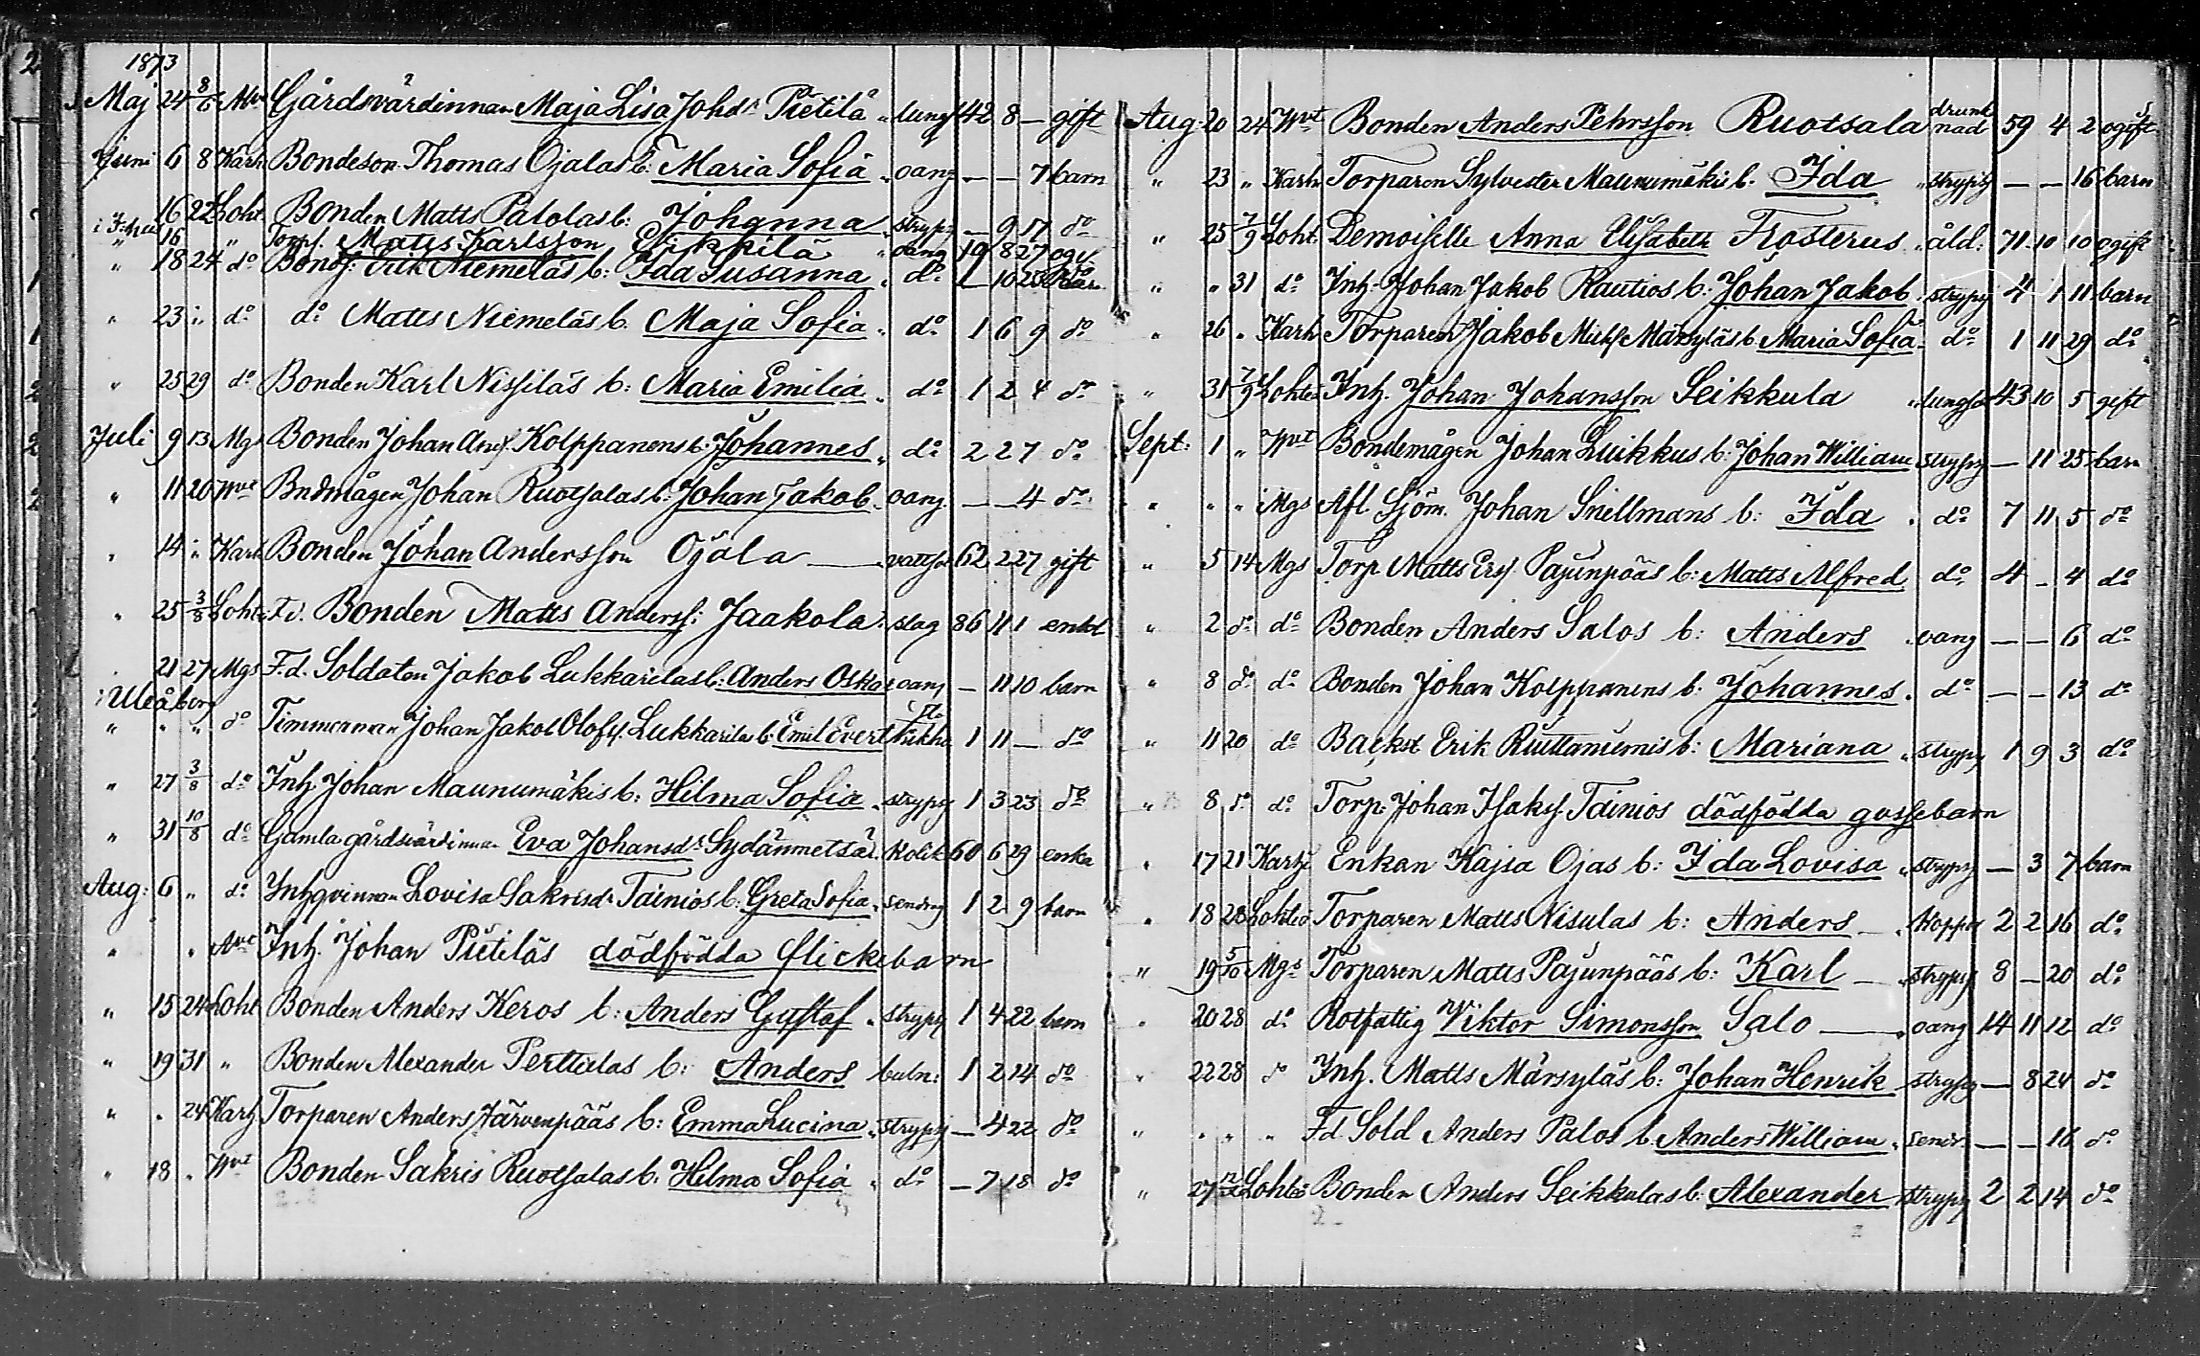 1873
Maj 24 8/6 Gårdsvärdinnan Maja Lisa Johsdr Pietilä lungs 42 8 — gift
Juni 6 8 Karh Bondeson Thomas Ojalas b: Maria Sofia oang — — 7 barn
" 16 22 Loht Bonden Matts Palolas b: Johanna strypsj — 9 17 do
" 16 " Torps. Matts Karlsson Erkkilä oang 19 8 27 ogif
" 18 24 do Bonds: Erik Niemeläs b: Ida Susanna do 1 10 23 barn
" 23 " do do Matts Niemeläs b. Maja Sofia do 1 6 9 do
" 25 29 do Bonden Karl Nissiläs b: Maria Emilia do 1 2 4 do
Juli 9 13 Mgs Bonden Johan Ands. Kolppanens b: Johannes do 2 2 7 do
" 11 20 Wvt Bndmågen Johan Ruotsalas b: Johan Jakob oang — — 4 do
" 14 " Karh Bonden Johan Andersson Ojala — vattsot 62 2 27 gift
" 25 3/8 Lohteå F.d. Bonden Matts Anderss: Jaakola slag 86 11 1 enkl
" 21 27 Mgs F.d. Soldaten Jakob Lukkarilas b: Anders Oskar oang — 11 10 barn
i Uleåborg
" " " do Timmerman Johan Jakob Olofs. Lukkarilas b: Emil Evert kikho 1 11 — do
" 27 3/8 do Inh. Johan Maunumäkis b: Hilma Sofia strypsj 1 3 23 do
" 31 10/8 do Gamla gårdsvärdinnan Eva Johansdr Sydänmetsä kolik 60 6 29 enka
Aug: 6 " do Inhqvinnan Lovisa Sakrisdr Tainios b: Greta Sofia sendrag 1 2 9 barn
" " Inh. Johan Pietiläs dödfödda flickebarn
" 15 24 Loht Bonden Anders Keros b: Anders Gustaf strypsj 1 4 22 barn
" 19 31 " Bonden Alexander Perttulas b: Anders buln: 1 2 14 do
" " 24 Karh Torparen Anders Järvenpääs b: Emma Lucina strypsj — 4 22 do
" 18 " Wvt Bonden Sakris Ruotsalas b: Hilma Sofia do — 7 18 do
Aug. 20 24 Wvt Bonden Anders Pehrsson Ruotsala drunknad 59 4 2 ogift
" 23 " Karh Torparen Sylvester Maunumäkis b. Ida strypsj — — 16 barn
" 25 7/9 Loht Demoiselle Anna Elisabeth Frosterus åld: 71 10 10 ogift
" " 31 do Inh. Johan Jakob Rautios b: Johan Jakob strypsj 4 1 11 barn
" 26 " Karh Torparen Jakob Mickls Märsyläs b. Maria Sofia do 1 11 29 do
" 31 7/9 Lohteå Inh. Johan Johansson Seikkula lungsot 43 10 5 gift
Sept: 1 " Wvt Bondemågen Johan Luikkus b: Johan William strypsj — 11 25 barn
" " " Mgs Afl. Sjöm. Johan Snellmans b: Ida do 7 11 5 do
" 5 14 Mgs Torp. Matts Ers. Pajunpääs b: Matts Alfred do 4 — 4 do
" 2 do do Bonden Anders Salos b: Anders oang — — 6 do
" 8 do do Bonden Johan Kolppanens b: Johannes do — — 13 do
" 11 20 do Backst Erik Riuttaniemis b: Mariana strypsj 1 9 3 do
" 8 do do Torp: Johan Isaks. Tainios dödfödda gossebarn
" 17 21 Karh Enkan Kajsa Ojas b: Ida Lovisa strypsj — 3 7 barn
" 18 28 Lohteå Torparen Matts Nisulas b: Anders — koppor 2 2 16 do
" 19 5/10 Mgs Torparen Matts Pajunpääs b: Karl — strypsj 8 — 20 do
" 20 28 do Rotfattig Viktor Simonsson Salo — oang 14 11 12 do
" 22 28 do Inh. Matts Märsyläs b: Johan Henrik strypsj — 8 24 do
" " " " Fd Sold Anders Palos b. Anders William sendr — — 16 do
" 27 Lohteå Bonden Anders Seikkulas b: Alexander strypsj 2 2 14 do